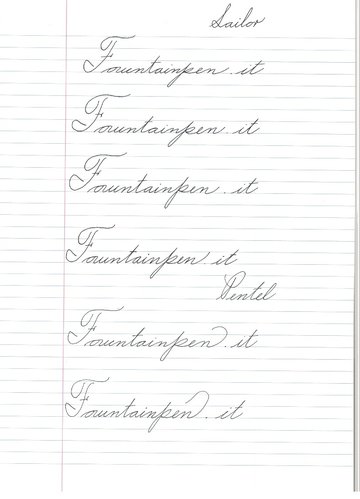 Sailor
Fountainpen.it
Fountainpen.it
Fountainpen.it
Fountainpen.it
Pentel
Fountainpen.it
Fountainpen.it